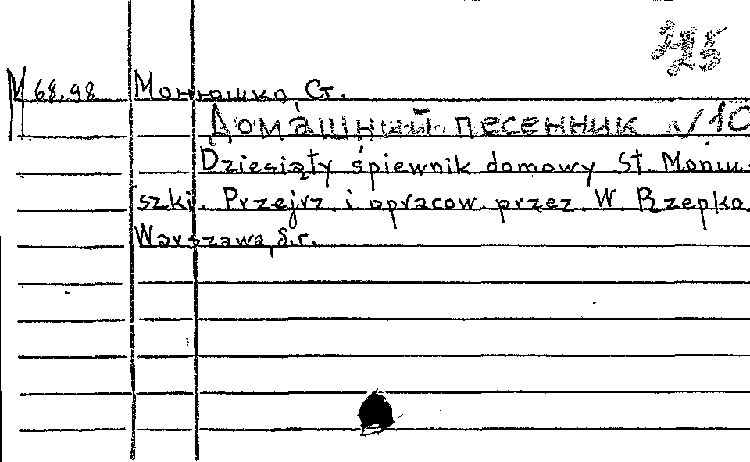 325
М 68.98 Монюшко, Ст.
Домашний песенник √10
Dziesiąty śpiewnik domowy St. Moniu-
szki. Przejrz. i opracow. przez W Rzepko.
Warszawa, s.r.